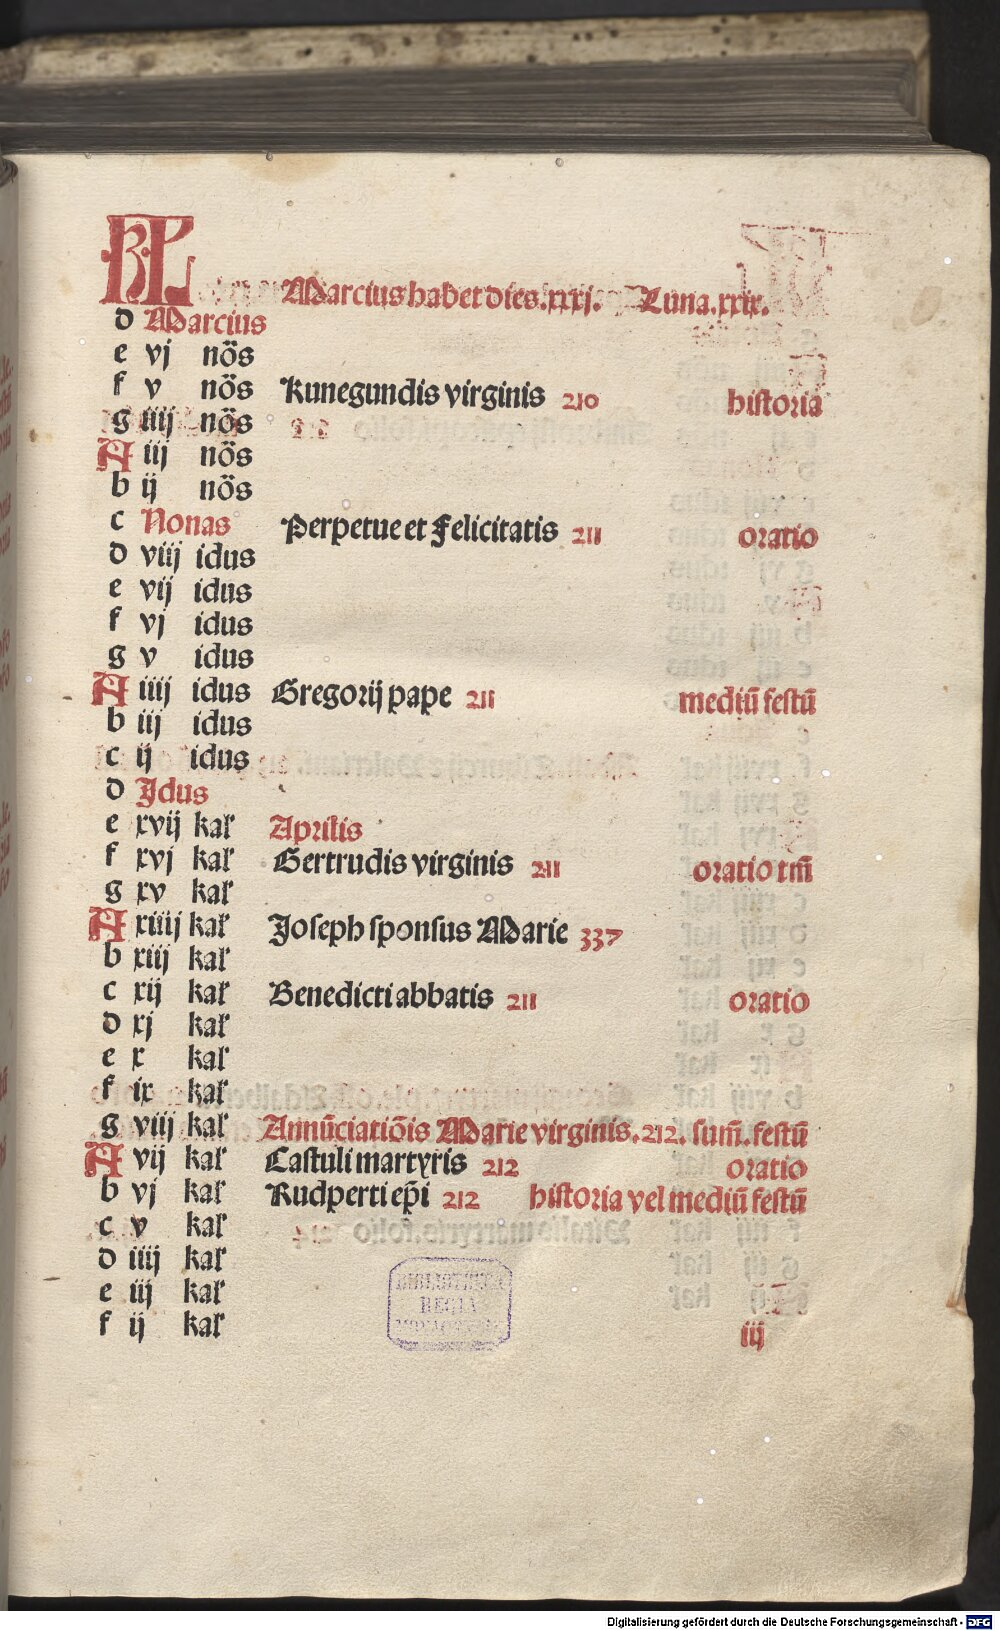 KL Marcius habet dies .xxxj. Luna .xxix.
d Marcius
e vj nōs
f v nōs Kunegundis virginis 210 historia
g iiij nōs
A iij nōs
b ij nōs
c Nonas Perpetue et Felicitatis 211 oratio
d viij idus
e vij idus
f vj idus
g v idus
A iiij idus Gregorij pape 211 mediū festū
b iij idus
c ij idus
d Jdus
e xvij kal' Aprilis
f xvj kal' Gertrudis virginis 211 oratio tm̄
g xv kal'
A xiiij kal' Joseph sponsus Marie 337
b xiij kal'
c xij kal' Benedicti abbatis 211 oratio
d xj kal'
e x kal'
f ix kal'
g viij kal' Annūciatiōis Marie virginis. 212. sum̄. festū
A vij kal' Castuli martyris 212 oratio
b vj kal' Rudperti ep̄i 212 historia vel mediū festū
c v kal'
d iiij kal'
e iij kal'
f ij kal'
iij
BIBLIOTHECA
REGIA
MONACENSIS
Digitalisierung gefördert durch die Deutsche Forschungsgemeinschaft - DFG